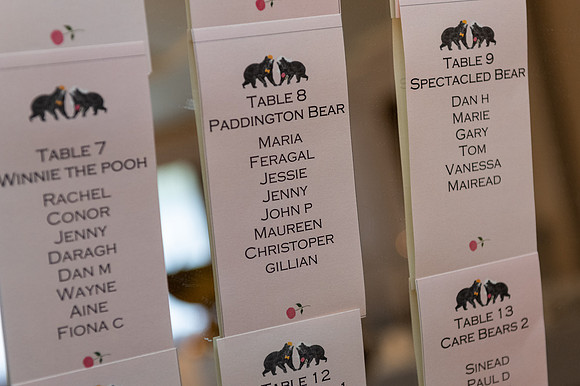 TABLE 7
WINNIE THE POOH
RACHEL
CONOR
JENNY
DARAGH
DAN M
WAYNE
AINE
FIONA C
TABLE 8
PADDINGTON BEAR
MARIA
FERAGAL
JESSIE
JENNY
JOHN P
MAUREEN
CHRISTOPER
GILLIAN
TABLE 12
TABLE 9
SPECTACLED BEAR
DAN H
MARIE
GARY
TOM
VANESSA
MAIREAD
TABLE 13
CARE BEARS 2
SINEAD
PAUL D